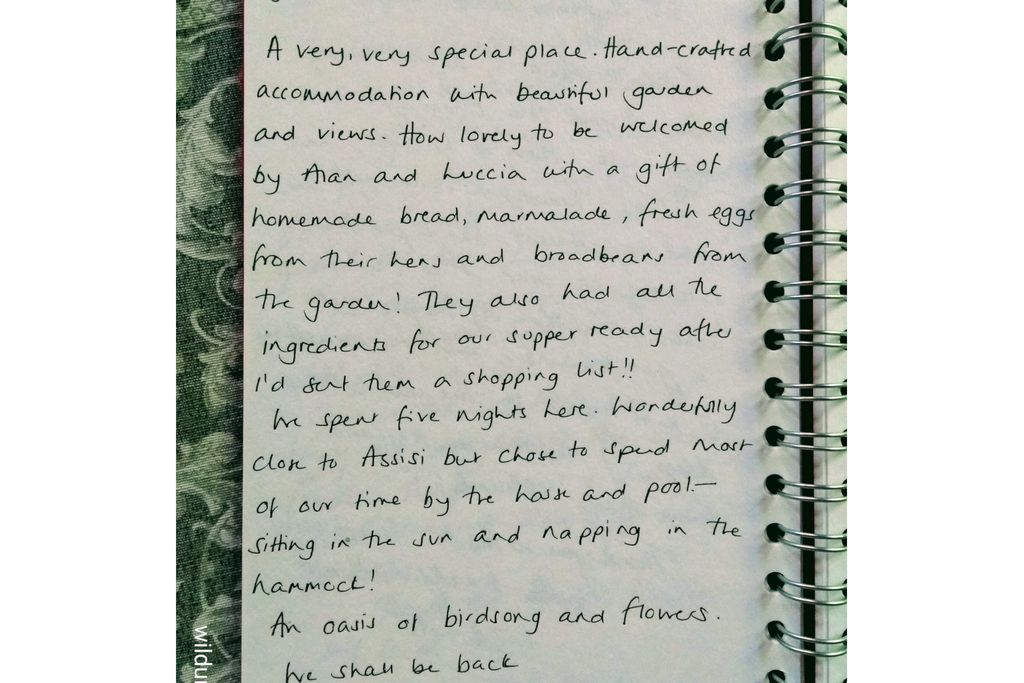 A very, very special place. Hand-crafted
accommodation with beautiful garden
and views. How lovely to be welcomed
by Alan and Luccia with a gift of
homemade bread, marmalade, fresh eggs
from their hens and broadbeans from
the garden! They also had all the
ingredients for our supper ready after
I'd sent them a shopping list!!
We spent five nights here. Wonderfully
close to Assisi but chose to spend most
of our time by the house and pool –
sitting in the sun and napping in the
hammock!
An oasis of birdsong and flowers.
We shall be back
wildu